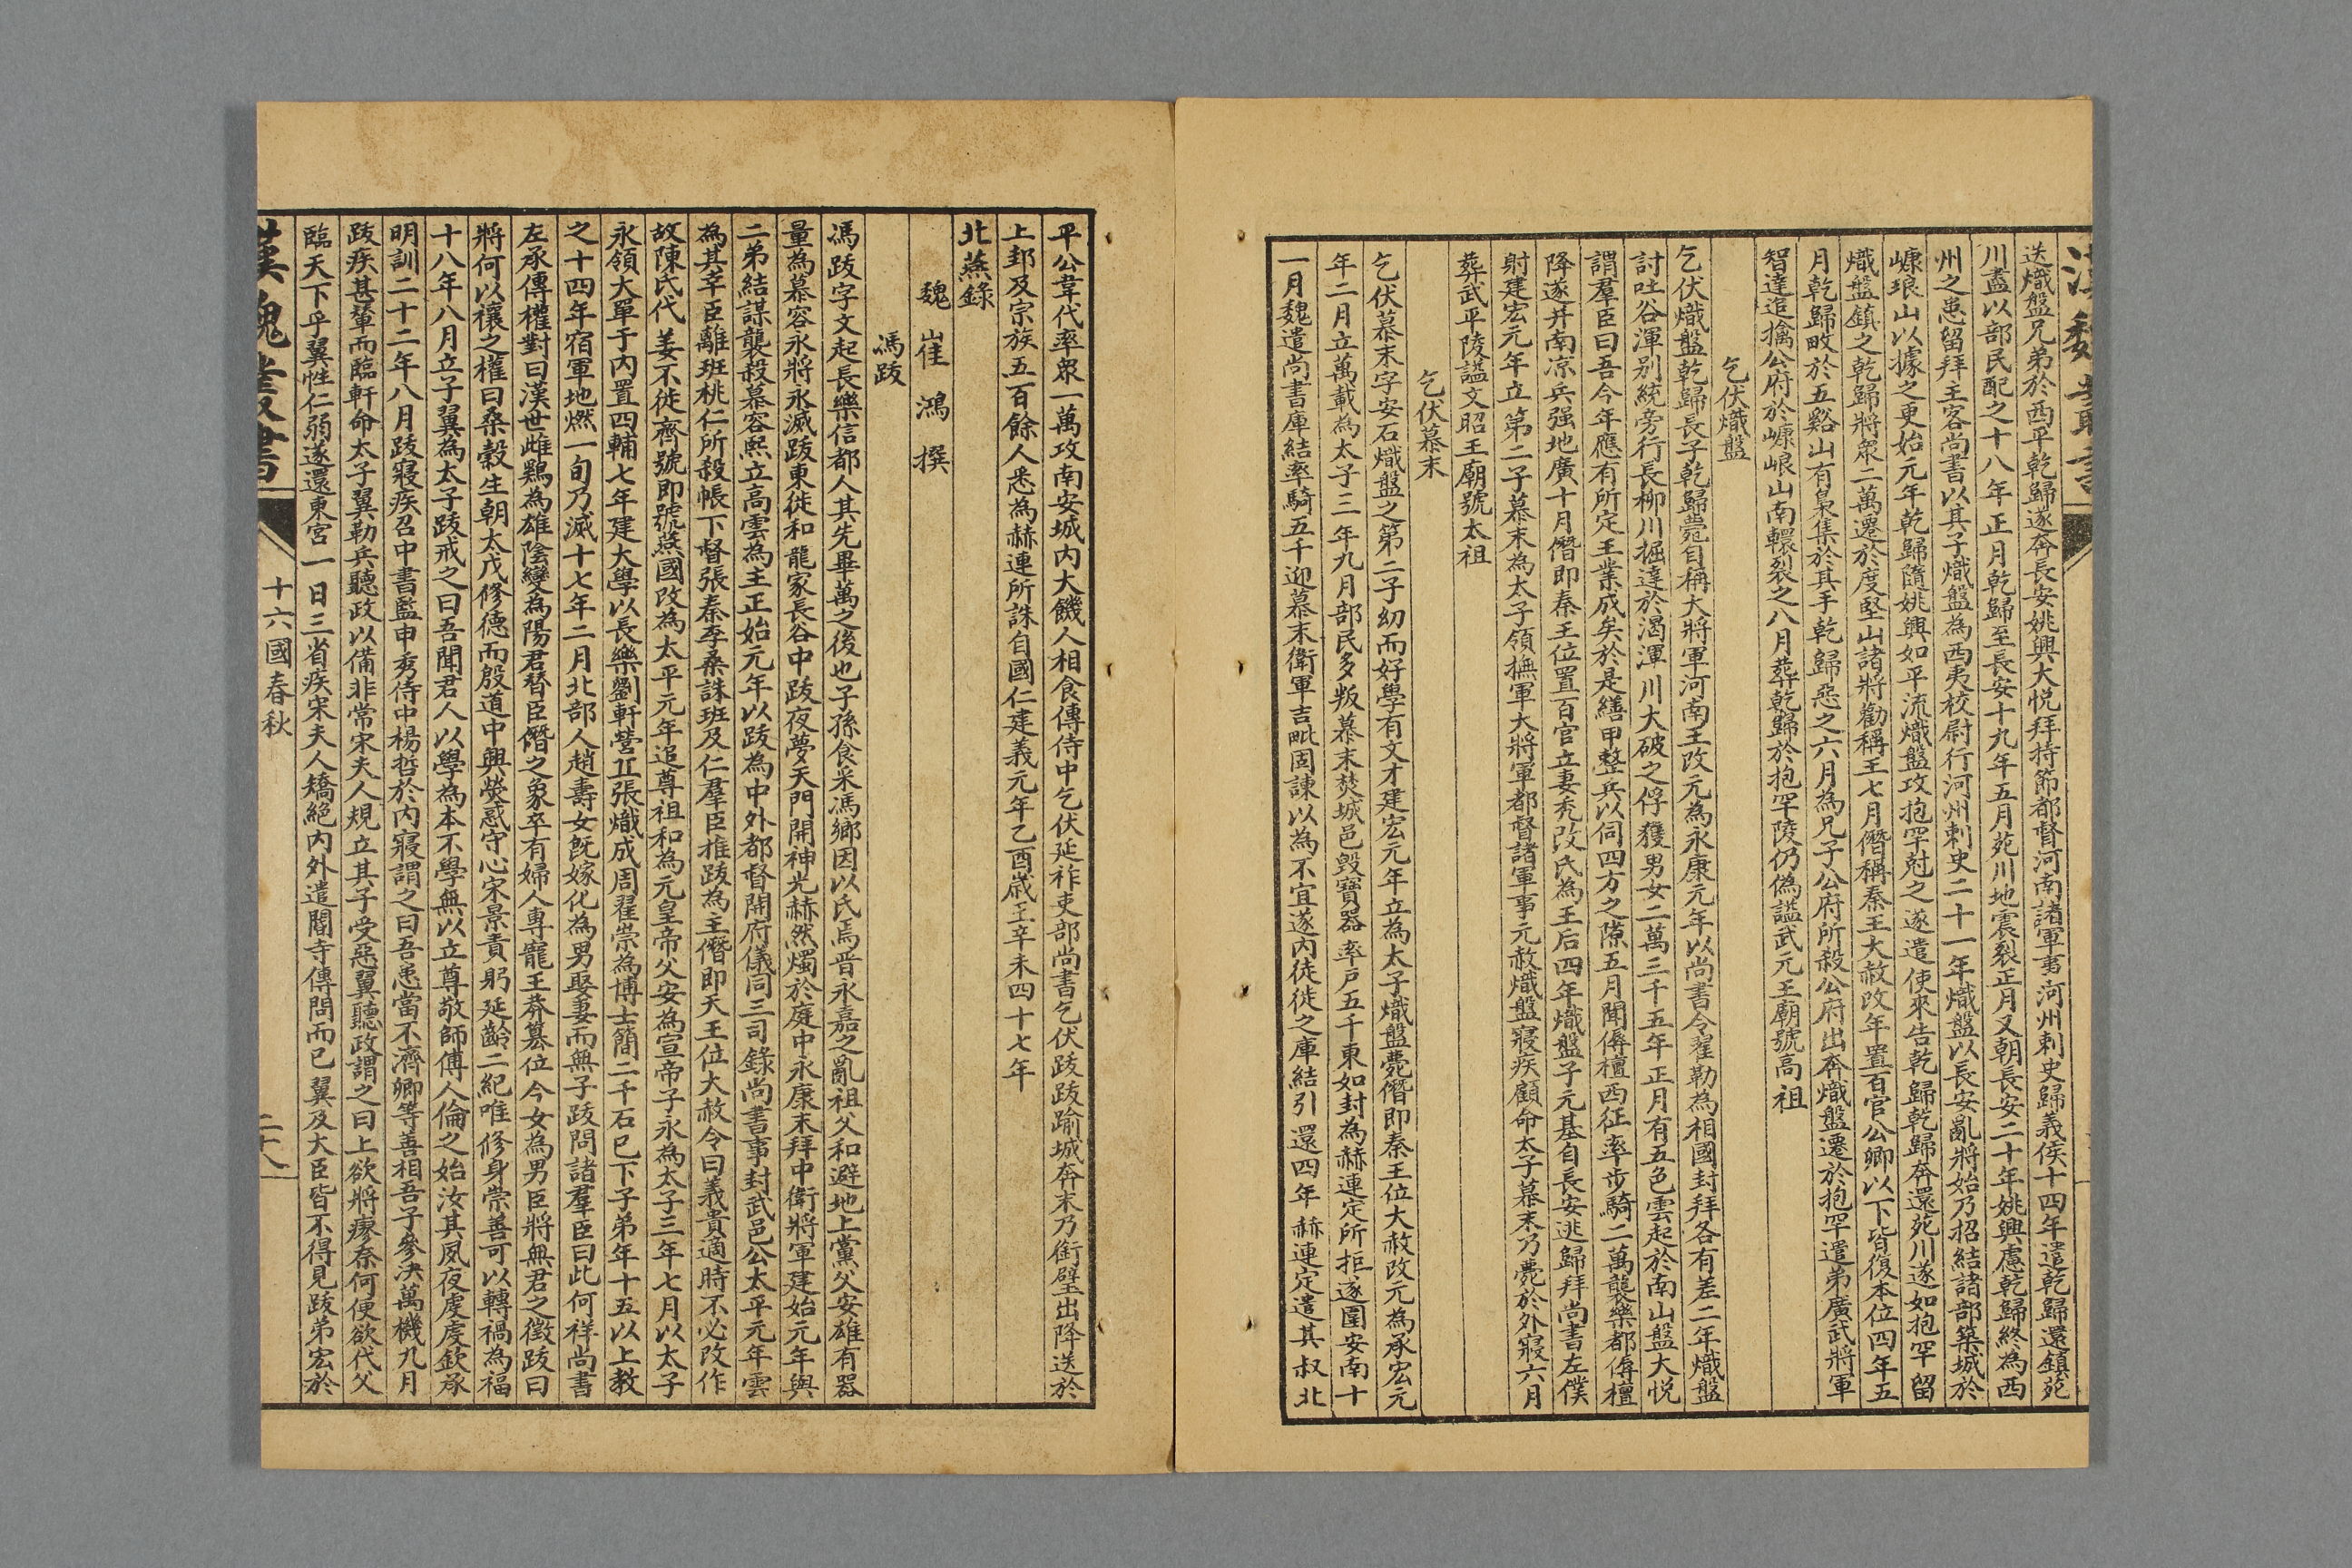 漢魏叢書
送熾盤兄弟於西平乾歸遂奔長安姚興大悅拜持節都督河南諸軍事河州刺史歸義侯十四年遣乾歸還鎮苑
川盡以部民配之十八年正月乾歸至長安十九年五月苑川地震裂正月又朝長安二十年姚興慮乾歸終為西
州之患留拜主客尚書以其子熾盤為西夷校尉行河州刺史二十一年熾盤以長安亂將始乃招結諸部築城於
嵻㟍山以據之更始元年乾歸隨姚興如平流熾盤攻抱罕尅之遂遣使來告乾歸乾歸奔還苑川遂如抱罕留
熾盤鎮之乾歸將衆二萬遷於度堅山諸將勸稱王七月僭稱秦王大赦改年置百官公卿以下皆復本位四年五
月乾歸畋於五谿山有梟集於其手乾歸惡之六月為兄子公府所殺公府出奔熾盤遷於抱罕遣弟廣武將軍
智達追擒公府於嵻㟍山南轘裂之八月葬乾歸於抱罕陵仍偽謚武元王廟號高祖
乞伏熾盤
乞伏熾盤乾歸長子乾歸薨自稱大將軍河南王改元為永康元年以尚書令翟勒為相國封拜各有差二年熾盤
討吐谷渾别統旁行長柳川掘達於渴渾川大破之俘獲男女二萬三千五年正月有五色雲起於南山盤大悅
謂羣臣曰吾今年應有所定王業成矣於是繕甲整兵以伺四方之隙五月聞傉檀西征率步騎二萬襲樂都傉檀
降遂并南凉兵强地廣十月僭即秦王位置百官立妻禿改氏為王后四年熾盤子元基自長安逃歸拜尚書左僕
射建宏元年立第二子慕末為太子領撫軍大將軍都督諸軍事元赦熾盤寢疾顧命太子慕末乃薨於外寢六月
葬武平陵謚文昭王廟號太祖
乞伏慕末
乞伏慕末字安石熾盤之第二子幼而好學有文才建宏元年立為太子熾盤薨僭即秦王位大赦改元為承宏元
年二月立萬載為太子三年九月部民多叛慕末焚城邑毀寶器率戶五千東如封為赫連定所拒遂圍安南十
一月魏遣尚書庫結率騎五千迎慕末衛軍吉毗固諫以為不宜遂内徒徙之庫結引還四年赫連定遣其叔北
平公韋代率衆一萬攻南安城内大饑人相食傳侍中乞伏延祚吏部尚書乞伏跋跋踰城奔末乃銜璧出降送於
上邽及宗族五百餘人悉為赫連所誅自國仁建義元年乙酉歲至辛未四十七年
北燕錄
魏 崔鴻 撰
馮跋
馮跋字文起長樂信都人其先畢萬之後也子孫食采馮鄉因以氏焉晋永嘉之亂祖父和避地上黨父安雄有器
量為慕容永將永滅跋東徙和龍家長谷中跋夜夢天門開神光赫然燭於庭中永康末拜中衛將軍建始元年與
二弟結謀襲殺慕容熙立高雲為主正始元年以跋為中外都督開府儀同三司錄尚書事封武邑公太平元年雲
為其幸臣離班桃仁所殺帳下督張泰李桑誅班及仁羣臣推跋為主僭即天王位大赦令曰義貴適時不必改作
故陳氏代姜不徙齊號即號燕國改為太平元年追尊祖和為元皇帝父安為宣帝子永為太子三年七月以太子
永領大單于内置四輔七年建大學以長樂劉軒營丘張熾成周翟崇為博士簡二千石已下子弟年十五以上教
之十四年宿軍地燃一旬乃滅十七年二月北部人趙壽女旣嫁化為男娶妻而無子跋問諸羣臣曰此何祥尚書
左承傳權對曰漢世雌鷄為雄陰變為陽君替臣僭之象卒有婦人專寵王莽篡位今女為男臣將無君之徵跋曰
將何以禳之權曰桑穀生朝太戊修德而殷道中興熒惑守心宋景責躬延齡二紀唯修身崇善可以轉禍為福
十八年八月立子翼為太子跋戒之曰吾聞君人以學為本不學無以立尊敬師傅人倫之始汝其夙夜虔虔欽承
明訓二十二年八月跋寢疾召中書監申秀侍中楊哲於内寢謂之曰吾患當不濟卿等善相吾子參決萬機九月
跋疾甚輦而臨軒命太子翼勒兵聽政以備非常宋夫人規立其子受惡翼聽政謂之曰上欲將瘳奈何便欲代父
臨天下乎翼性仁弱遂還東宮一日三省疾宋夫人矯絕内外遣閽寺傳問而已翼及大臣皆不得見跋弟宏於
漢魏叢書
十六國春秋
二十八